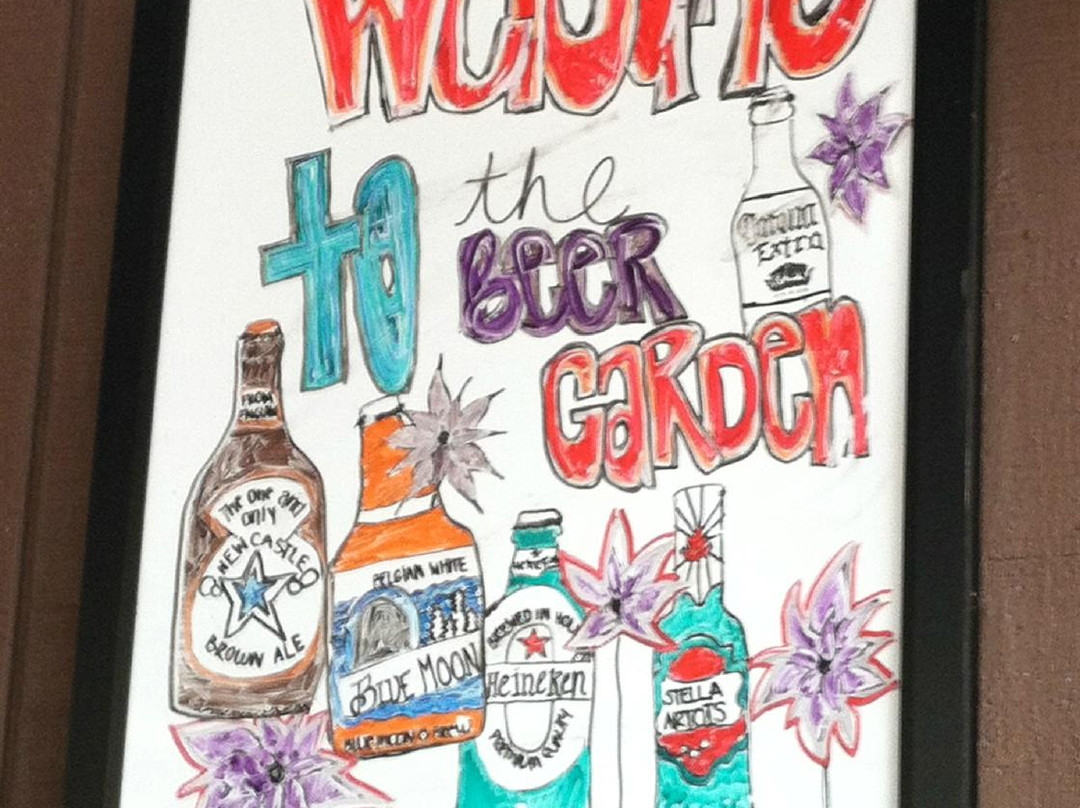 Welcome
to
the
BeeR
GaRDen
Corona
Extra
FROM
ENGLAND
The one and
only
NEWCASTLE
BROWN ALE
BELGIAN WHITE
BLUE MOON
BLUE MOON BREW
BREWED IN HOL
Heineken
PREMIUM QUALITY
STELLA
ARTOIS